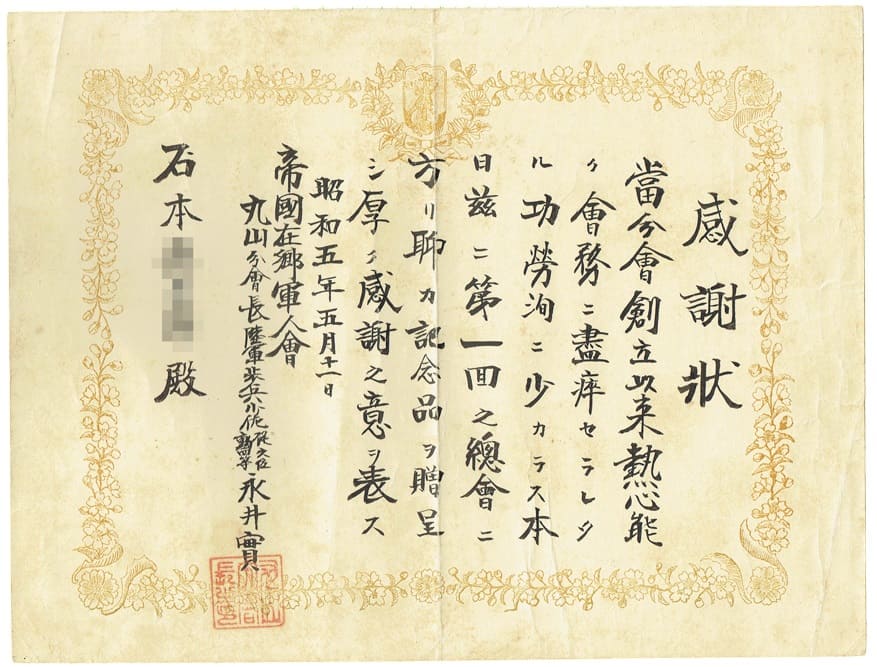 感謝狀
當分會創立以来熱心能
ク會務ニ盡瘁セラレタ
ル功勞洵ニ少カラス本
日兹ニ第一回之總會ニ
方リ聊カ記念品ヲ贈呈
シ厚ク感謝之意ヲ表ス
昭和五年五月十一日
帝國在郷軍人會
丸山分會長陸軍歩兵少佐從六位勲四等永井實
石本 殿